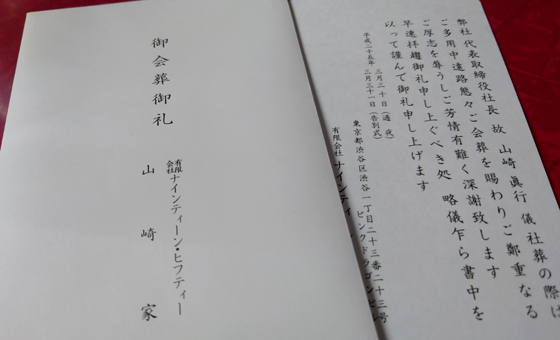 御会葬御礼
有限会社 ナインティーン・ヒフティー
山崎家
弊社 代表取締役社長 故 山崎眞行 儀 社葬の際は
ご多用中遠路態々ご会葬を賜わりご鄭重なる
ご厚志を辱うしご芳情有難く深謝致します
早速拝趨御礼申し上ぐべき処 略儀乍ら書中を
以って謹んで御礼申し上げます
平成二十五年 三月三十日(通夜)
三月三十一日(告別式)
東京都渋谷区渋谷一丁目二十三番二十三号
ピンクドラゴンビル
有限会社 ナインティ